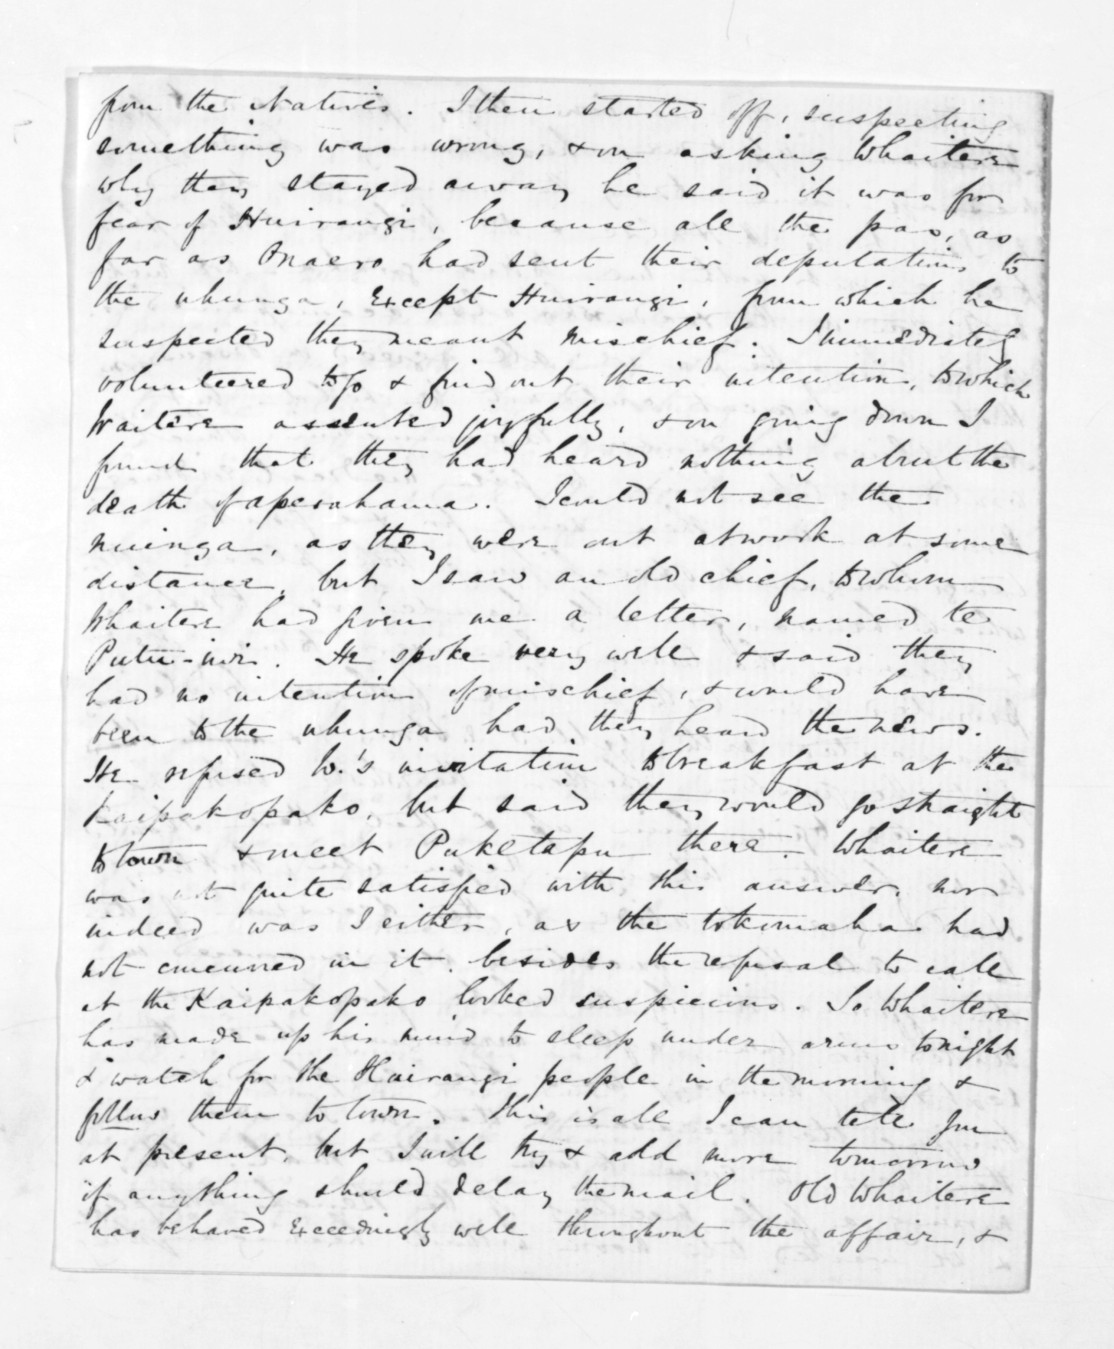 from the Natives. I then started off, suspecting
something was wrong, & on asking Whaitere
why they stayed away he said it was for
fear of Huirangi, because all the pas, as
far as Onaero had sent their deputations to
the uhunga, except Huirangi, from which he
suspected they meant mischief. I immediately
volunteered to go & find out their intention, to which
Waitere assented joyfully, & on going down I
found that they had heard nothing about the
death of aperahama. I could not see the
nuinga, as they were out at work at some
distance, but I saw an old chief, to whom
Whaitere had given me a letter, named te
Putu-. He spoke very well & said they
had no intention of mischief, & would have
been to the uhunga had they heard the news.
He refused W.'s invitation to breakfast at the
Kaipakopako, but said they would go straight
to town & meet Puketapu there. Whaitere
was not quite satisfied with this answer, nor
indeed was I either, as the tokomaha had
not concurred in it. besides the refusal to call
at the Kaipakopako looked suspicious. So Whaitere
has made up his mind to sleep under arms tonight
& watch for the Huirangi people in the morning &
follow them to town. This is all I can tell you
at present, but I will try & add more tomorrow
if anything should delay the mail. Old Whaitere
has behaved exceedingly well throughout the affair, &